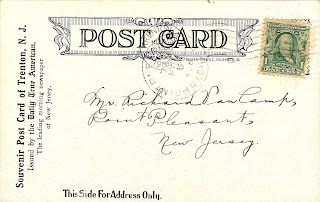 POST CARD
Souvenir Post Card of Trenton, N. J.
Issued by the Daily True American.
The leading morning newspaper
of New Jersey.
Mr. Richard Van Camp,
Point Pleasant,
New Jersey.
This Side For Address Only.